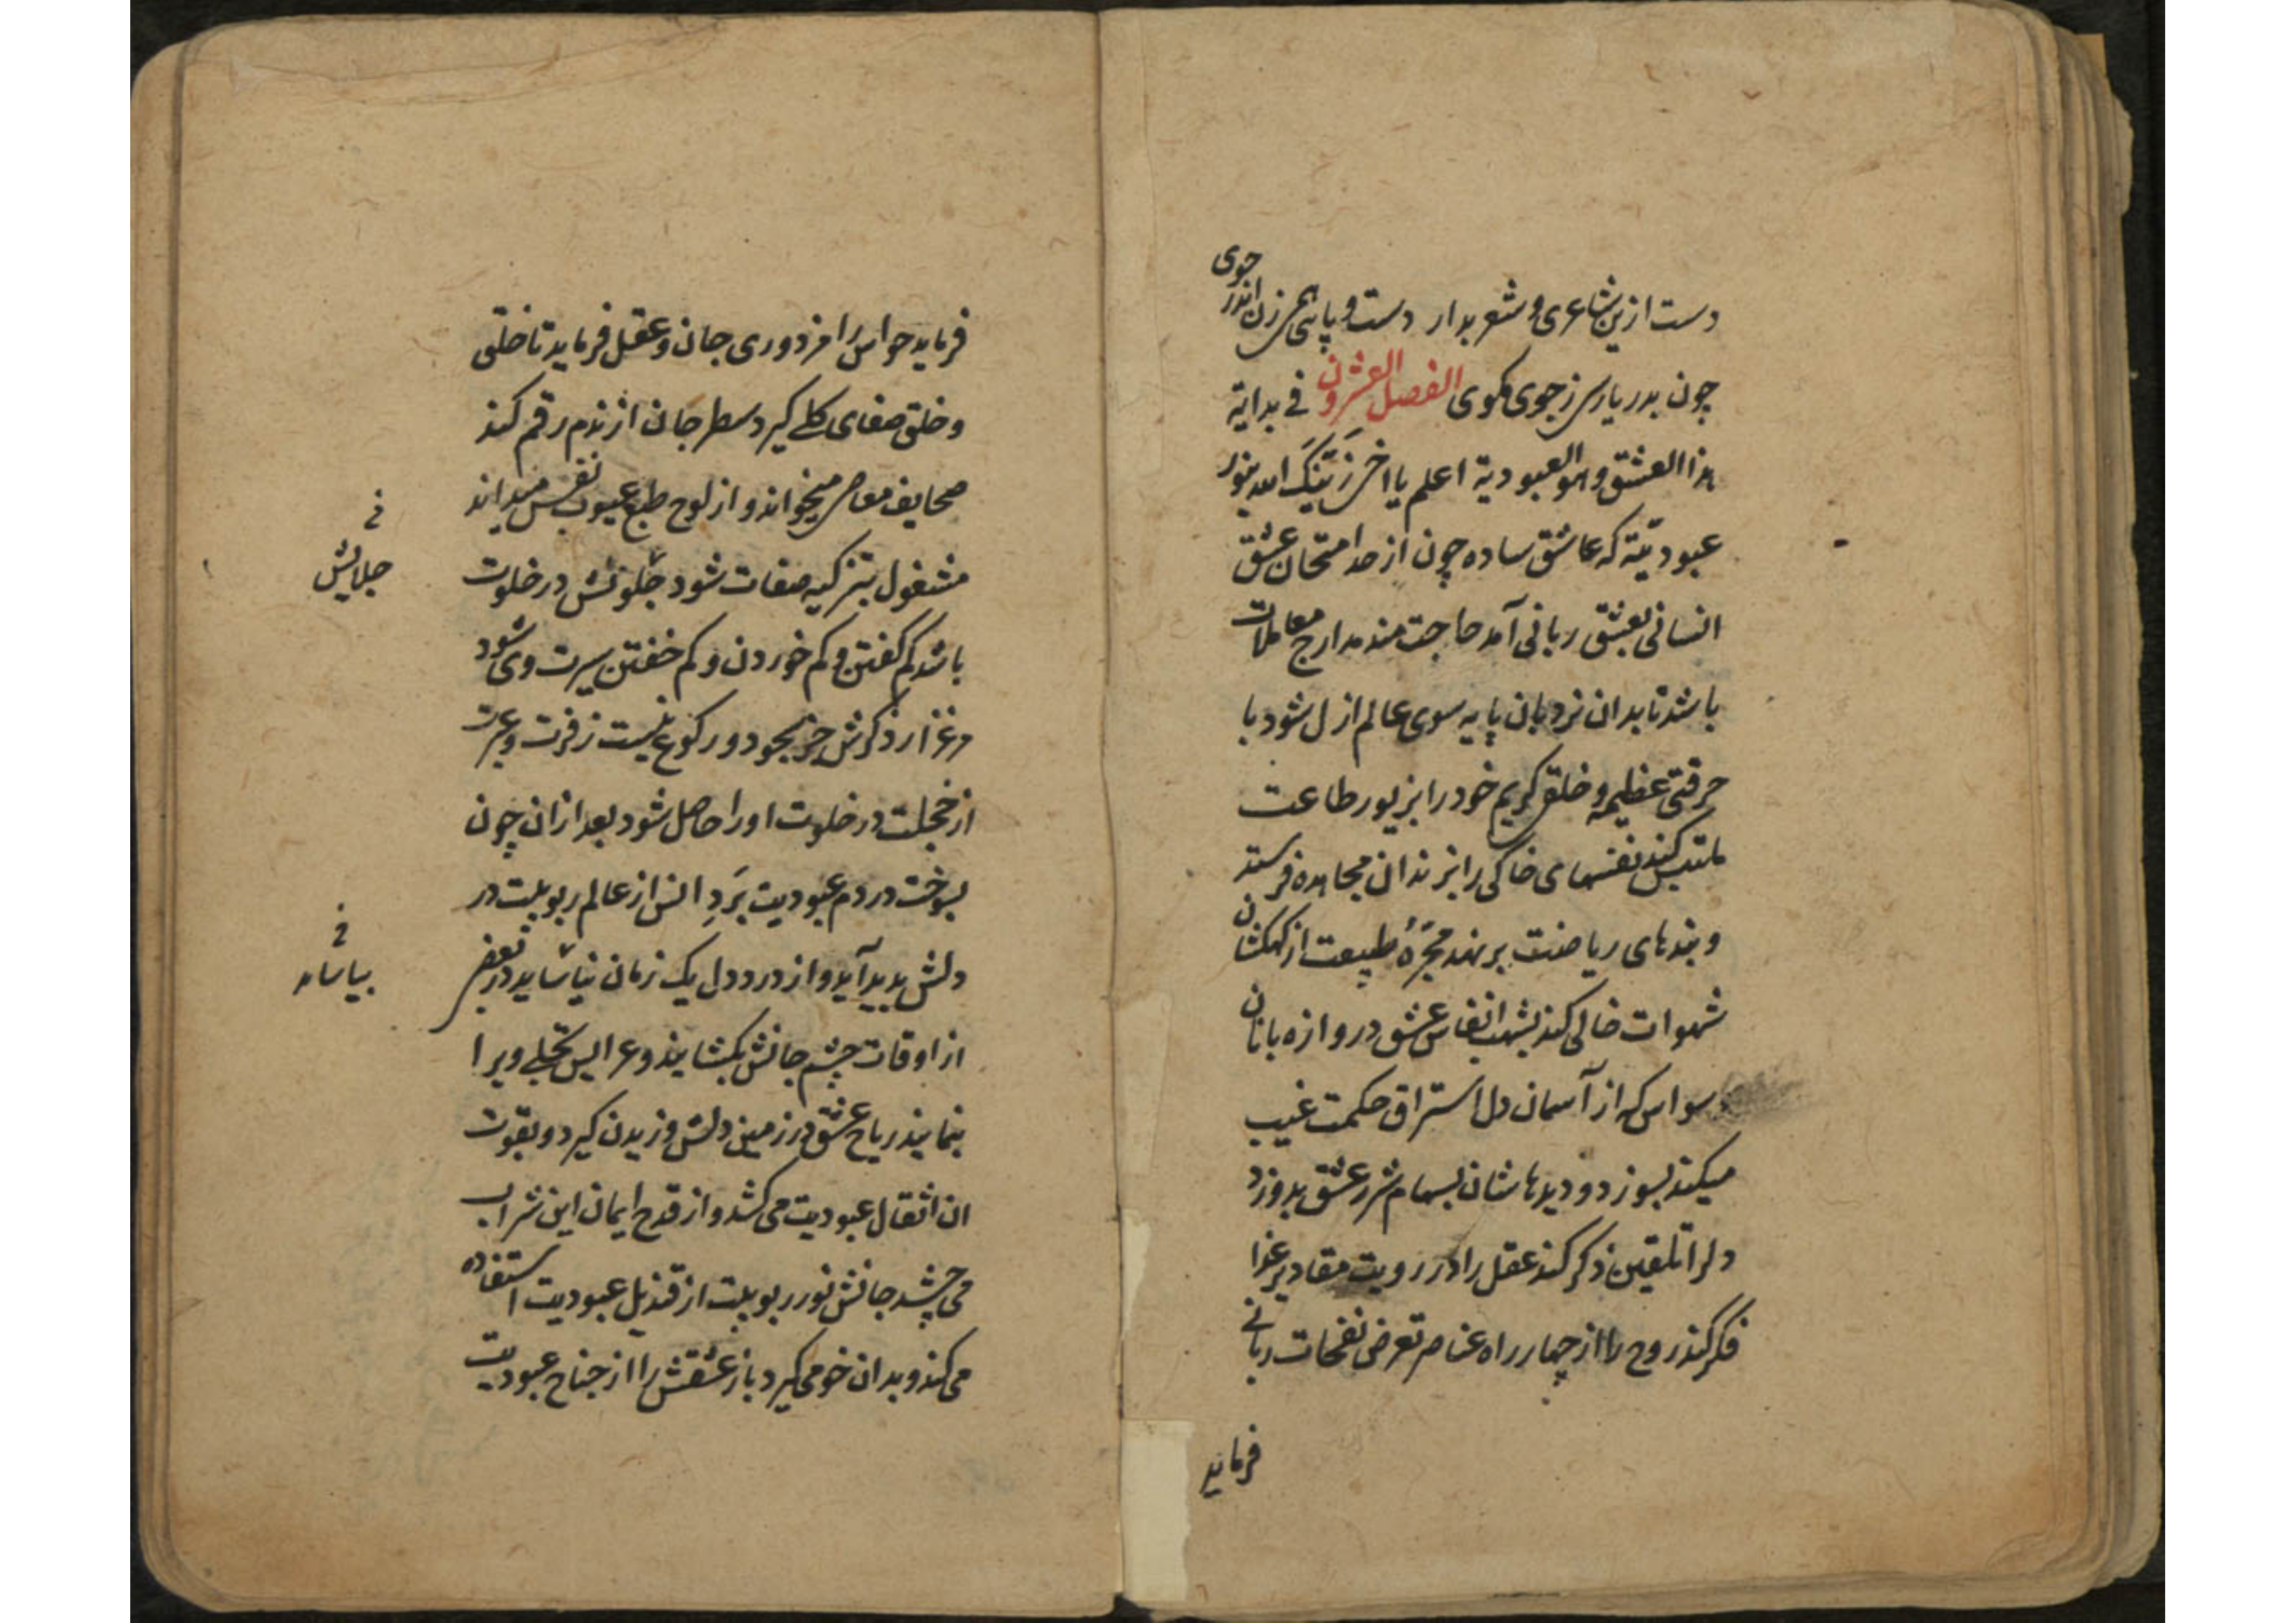 دست ازین شاعری و شعر بدار دست و پایی همی زن اندر جوی
چون بدریا رسی ز جوی مکوی الفصل العشرون فی بدایة
هذا العشق و هو العبودیة اعلم یا اخی زَیّنَکَ الله بنور
عبودیّته که عاشق ساده چون از حد امتحان عشق
انسانی بعشق ربانی آمد حاجت مند مدارج معاملات
باشد تا بدان نردبان پایه سوی عالم ازل شود با
حرقتی عظیم و خلق کریم خود را بزیور طاعت
ملتبس کند نفسهای خاکی را بزندان مجاهده فرستد
و بندهای ریاضت برنهد مجرّهٔ طبیعت از کهکشان
شهوات خالی کند بشهب انفاس عشق دروازه بانان
وسواس که از آسمان دل استراق حکمت غیب
میکنند بسوزد و دیدهاشان بسهام شرر عشق بدوزد
دلرا تلقین ذکر کند عقل را در رویت مقادیر غذا
فکر کند روح را از چهار راه عناصر تعرض نفحات ربانی
فرماید
فرماید حواس را مزدوری جان و عقل فرماید تا خلق
و خلق صفای کلی کیرد سطر جان از ندم رقم کند
صحایف معاصی میخواند و از لوح طبع عیوب نفس میداند
مشغول بتزکیه صفات شود جلوتش در خلوت
باشد کم کفتن و کم خوردن و کم خفتن سیرت وی شود
مرغزار ذکرش جز سجود و رکوع نیست زفرت و عبرت
از خجلت در خلوت او را حاصل شود بعد از ان چون
بسوخت در دم عبودیت بَردِ انس از عالم ربوبیت در
دلش پدید آید و از درد دل یک زمان نیاساید در بعضی
از اوقات چشم جانش بکشایند و عرایس تجلی ویرا
بنمایند ریاح عشق در زمین دلش وزیدن کیرد و بقوت
ان اثقال عبودیت می کشد و از قدح ایمان این شراب
می چشد جانش نور ربوبیت از قندیل عبودیت استفاده
می کند و بدان خو می کیرد باز عشقش را از جناح عبودیت